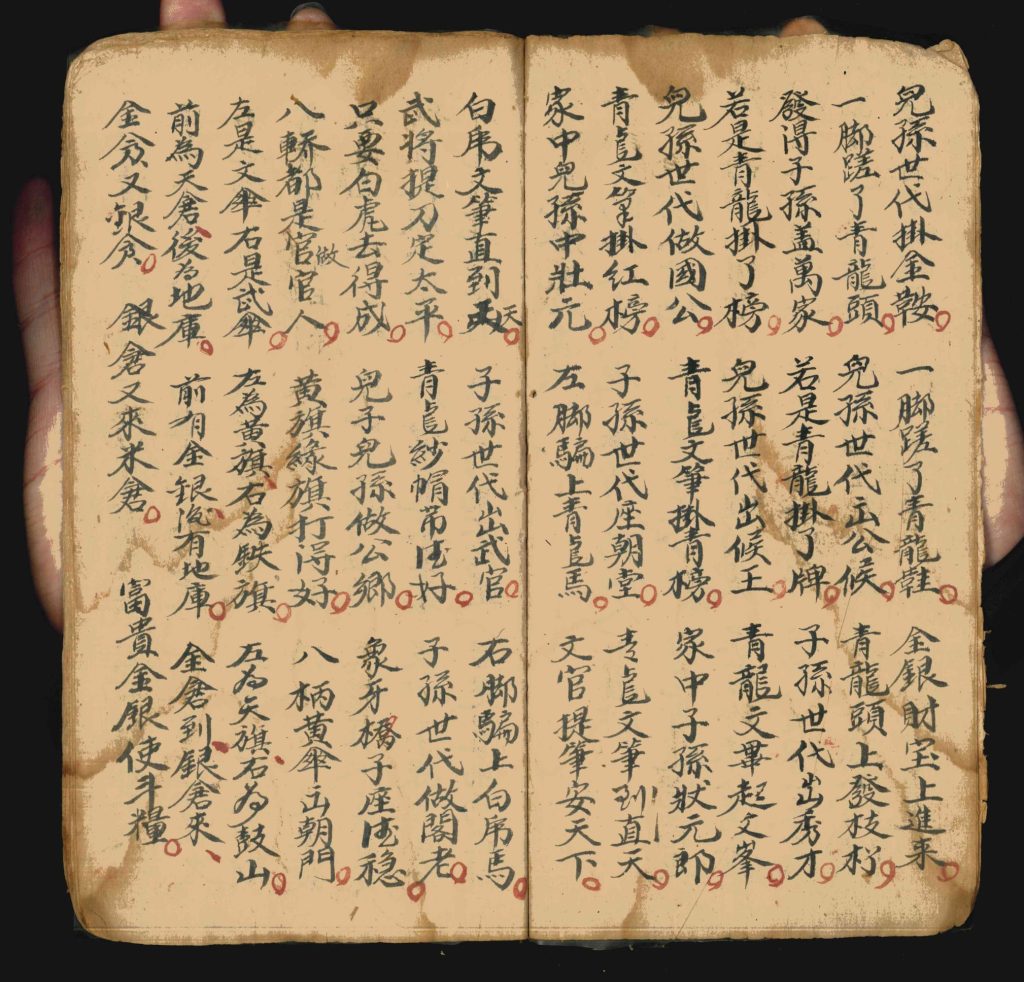 兒孫世代掛金鞍 一脚蹉了青龍鞋 金銀財宝上進来
一脚蹉了青龍頭 兒孫世代出公候 青龍頭上發枝
發淂子孫盖萬家 若是青龍掛了牌 子孫世代出秀才
若是青龍掛了榜 兒孫世代出候王 青龍文畢起文峯
兒孫世代做國公 青竜文筆掛青榜 家中子孫狀元郎
青竜文笔掛紅榜 子孫世代座朝堂 青竜文筆到直天
家中兒孫中壯元 左脚騙上青竜馬 文官提筆安天下
白虎文筆直到天 子孫世代出武官 右脚騙上白虎馬
武将提刀定太平 青竜紗帽帯得好 子孫世代做閣老
只要白虎去得成 兒子兒孫做公鄉 象牙橋子座得穏
八轎都是官做官人 黄旗緑旗打淂好 八柄黄傘出朝門
左是文傘右是武傘 左為黄旗右為鉄旗 左为天旗右为鼓山
前為天倉後为地庫 前有金銀后有地庫 金倉到銀倉来
金倉又銀倉 銀倉又來米倉 富貴金銀使斗糧